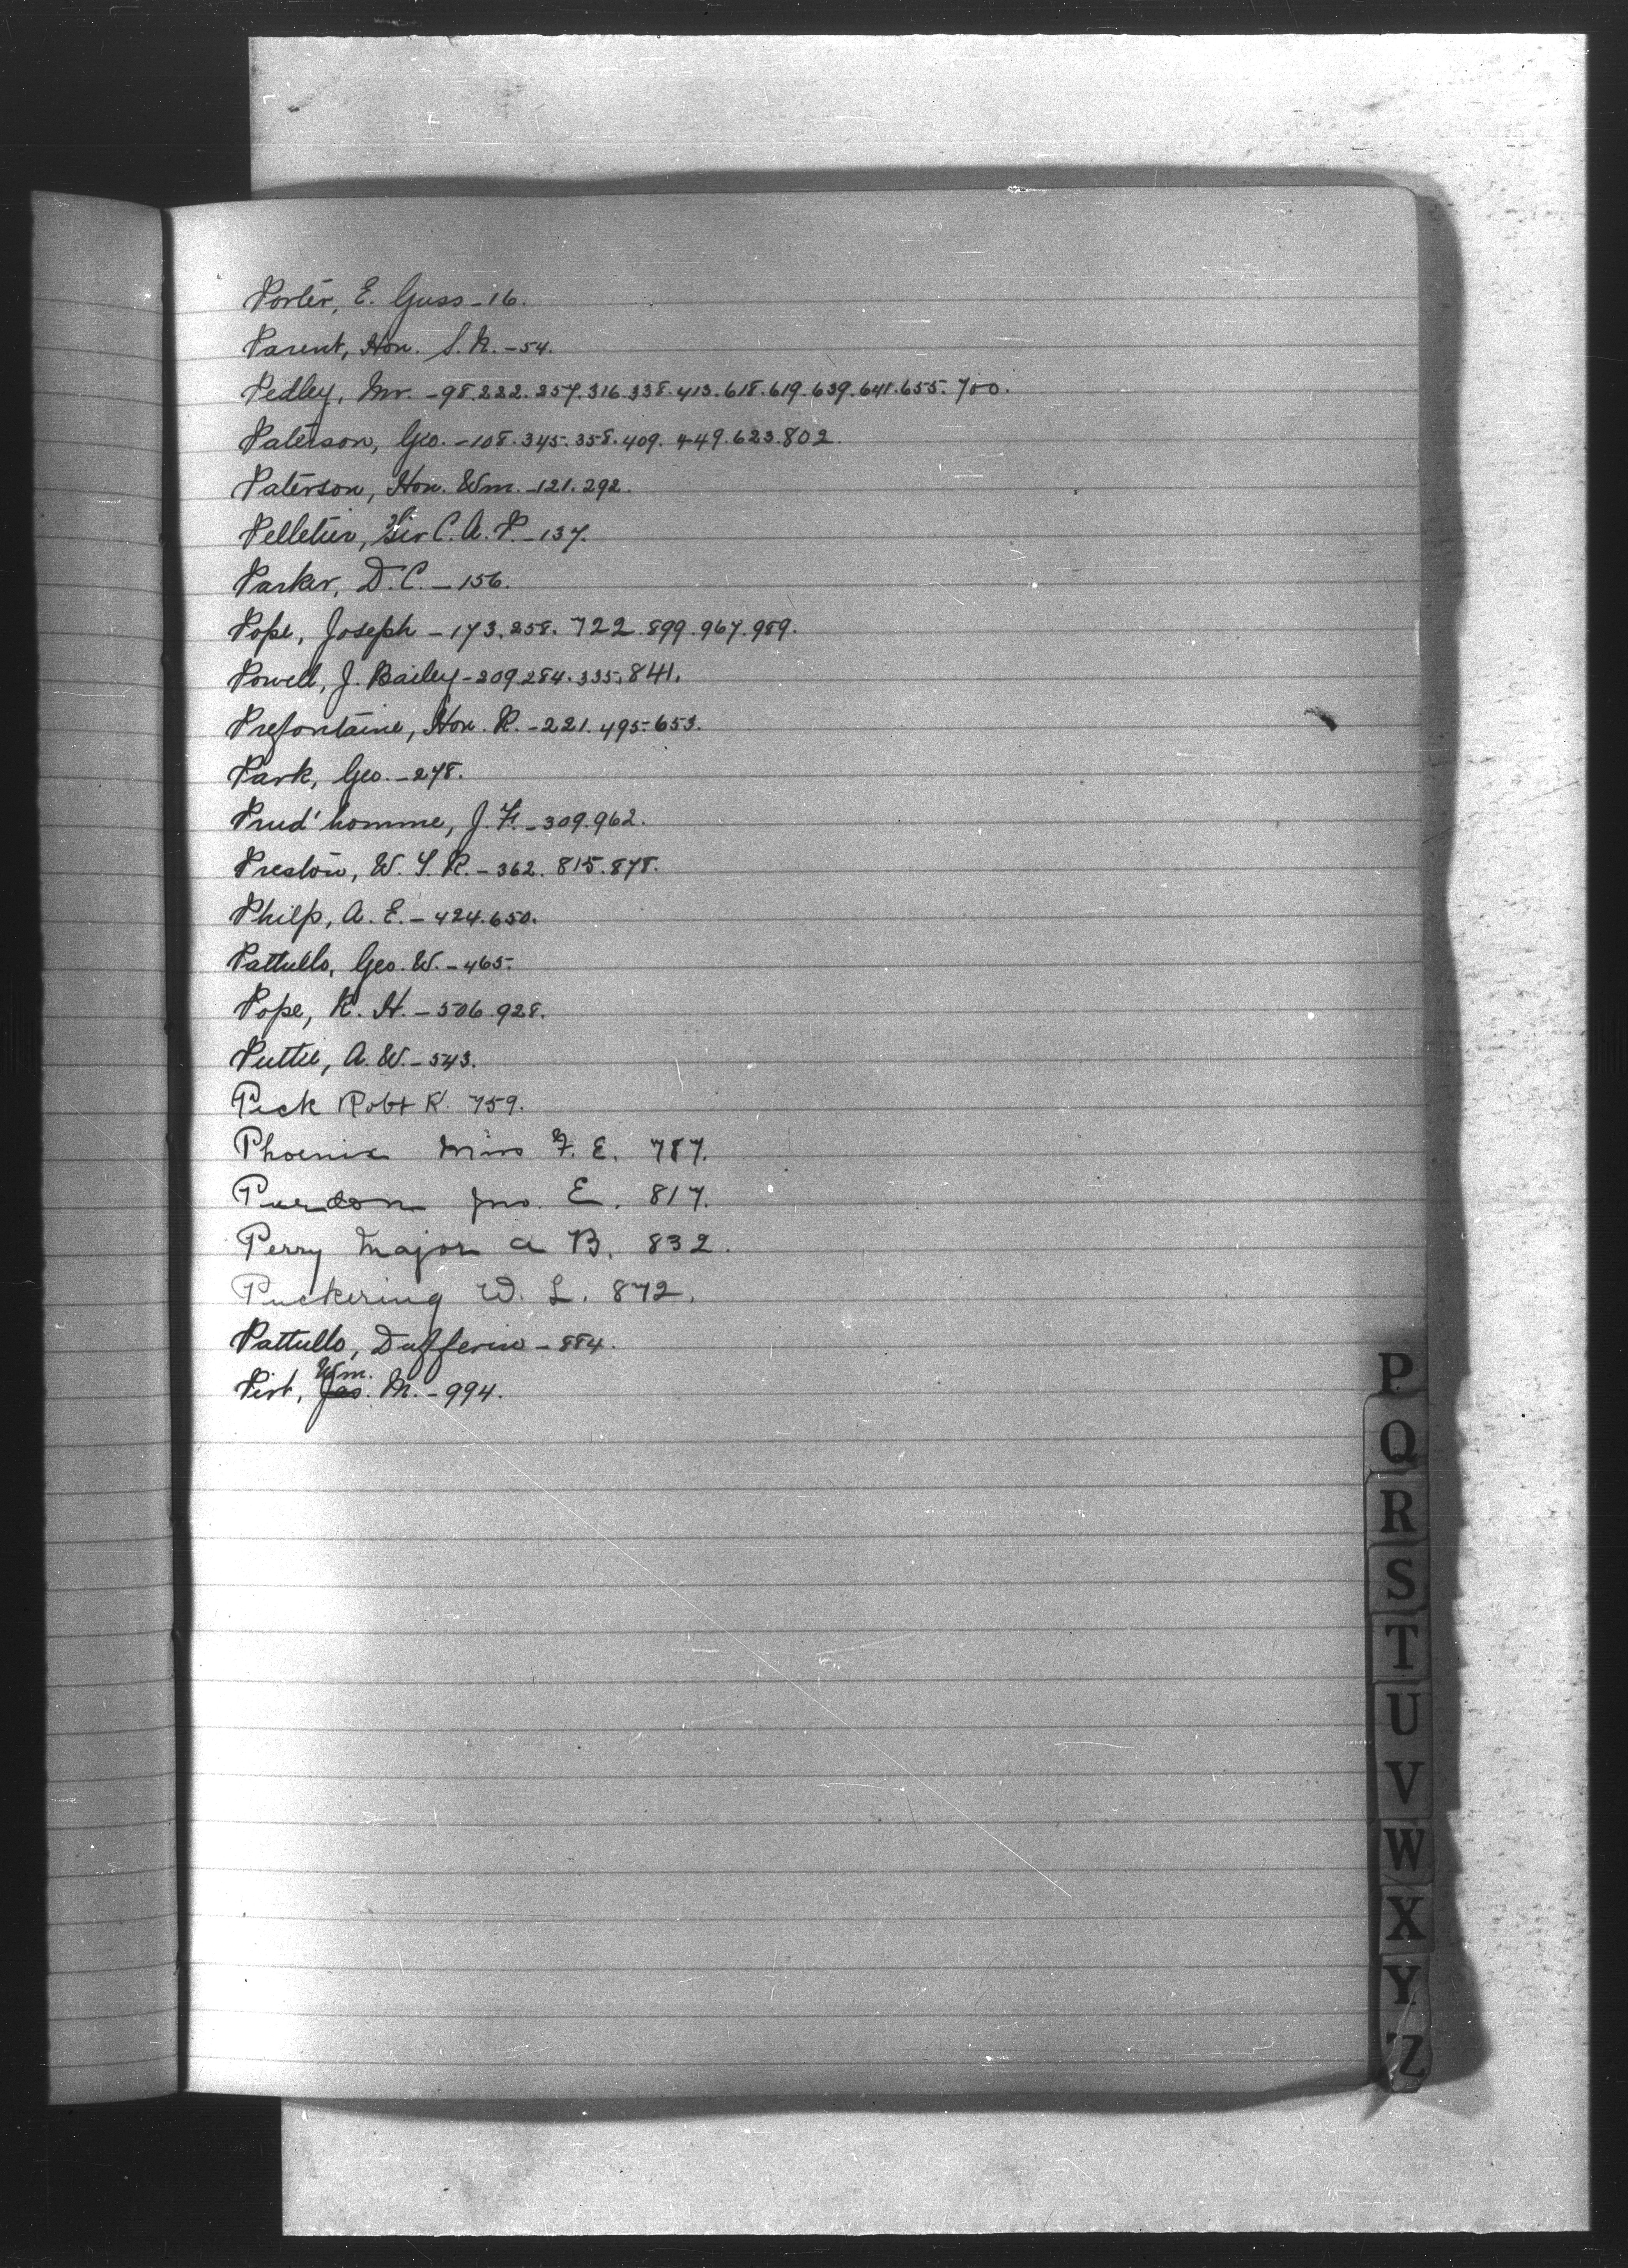 Porter, E. Guss - 16.
Parent, Hon. S. N. - 54.
Pedley, Mr. - 98. 222. 257. 316. 338. 413. 618. 619. 639. 641. 655. 700.
Paterson, Geo. - 108. 345. 358. 409. 449. 623. 802.
Paterson, Hon. Wm. - 121. 292.
Pelletier, Sir C. A. P. - 137.
Parker, D. C. - 156.
Pope, Joseph - 173. 258. 722. 899. 967. 989.
Powell, J. Bailey - 209. 284. 335. 841.
Prefontaine, Hon. R. - 221. 495. 653.
Park, Geo. - 278.
Prud'homme, J. F. - 309. 962.
Preston, W. T. R. - 362. 815. 878.
Philp, A. E. - 424. 650.
Pattullo, Geo. W. - 465.
Pope, R. H. - 506. 928.
Puttee, A. W. - 543.
Peck Robt K. 759.
Phoenix Miss F. E. 787.
Purdom Jno. E. 817.
Perry Major A B. 832.
Puckering W. L. 872.
Pattullo, Dufferin - 884.
Wm.
Pirt, Jas. M. - 994.
P
Q
R
S
T
U
V
W
X
Y
Z